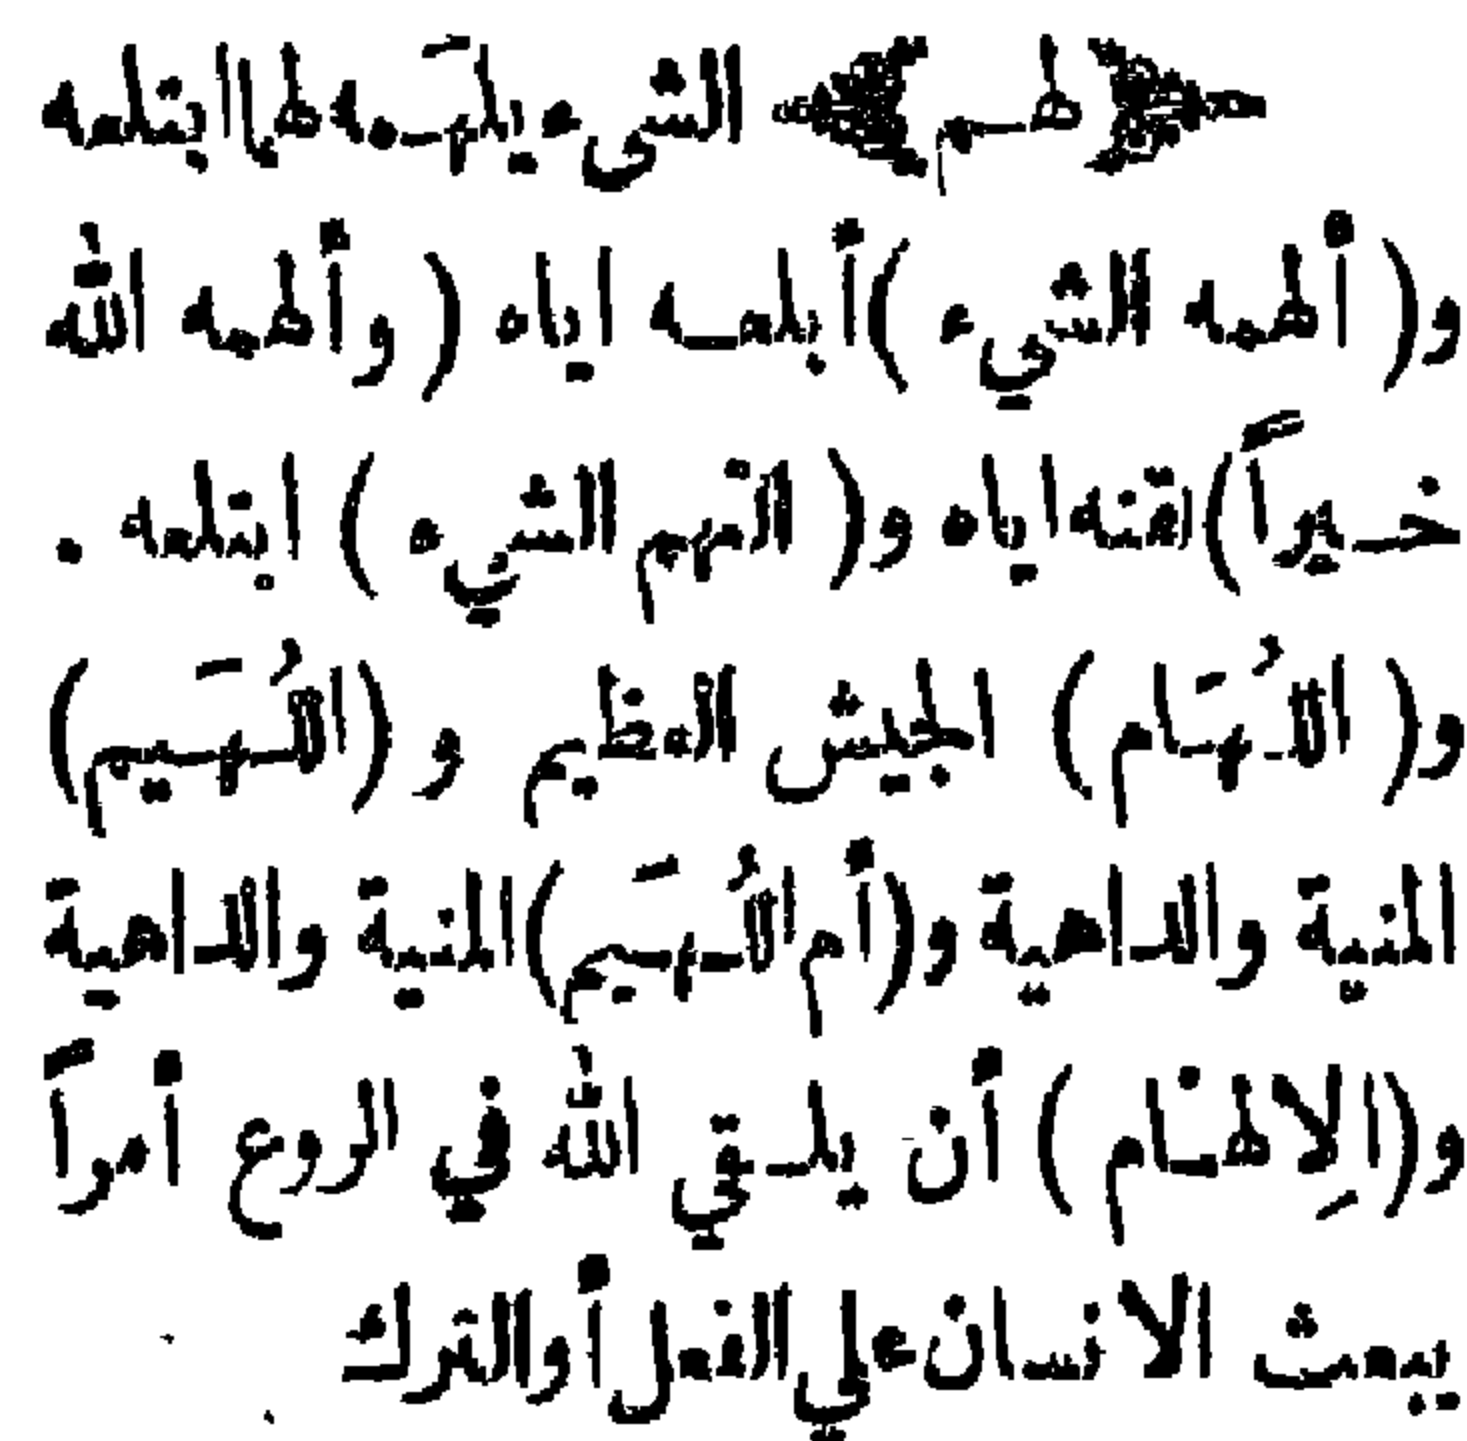 ﴿لهم﴾ الشيء يلهَمه لهما ابتلعه
و( ألهمه الشيء ) أبلعه اياه ( وألهمه الله
خيراً) لقنه اياه و( التهم الشيء ) ابتلعه .
و( اللُهَام ) الجيش العظيم و (اللُهَيم)
المنية والداهية و(أم اللُهَيم) المنية والداهية
و(الِالهام ) أن يلقي الله في الروع أمراً
يبعث الانسان علي الفعل أو الترك